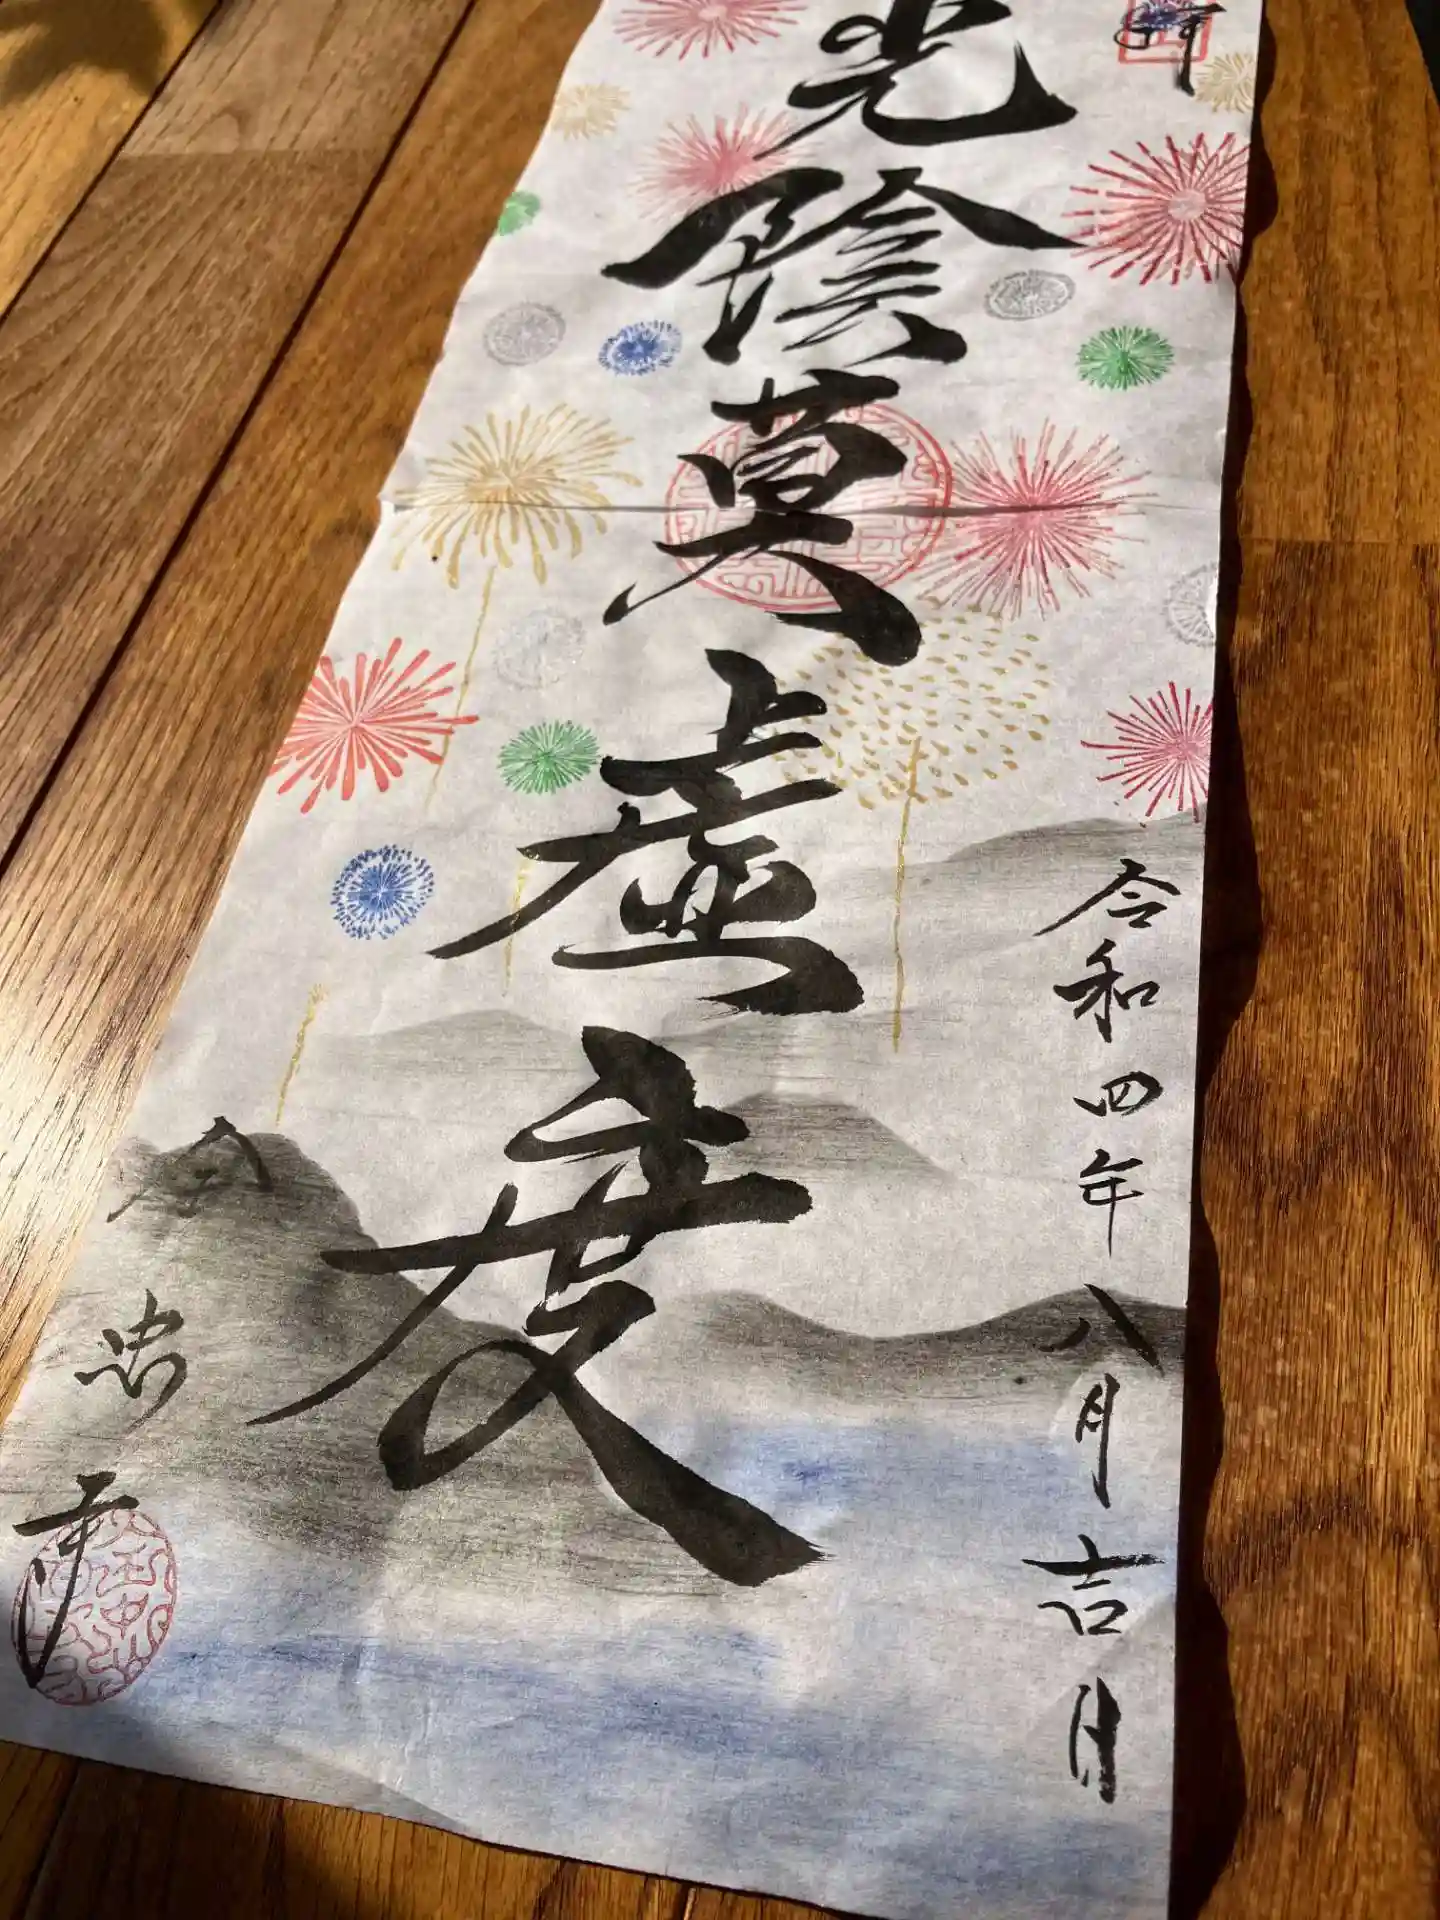 令和四年八月吉日
光陰莫虚度
忠